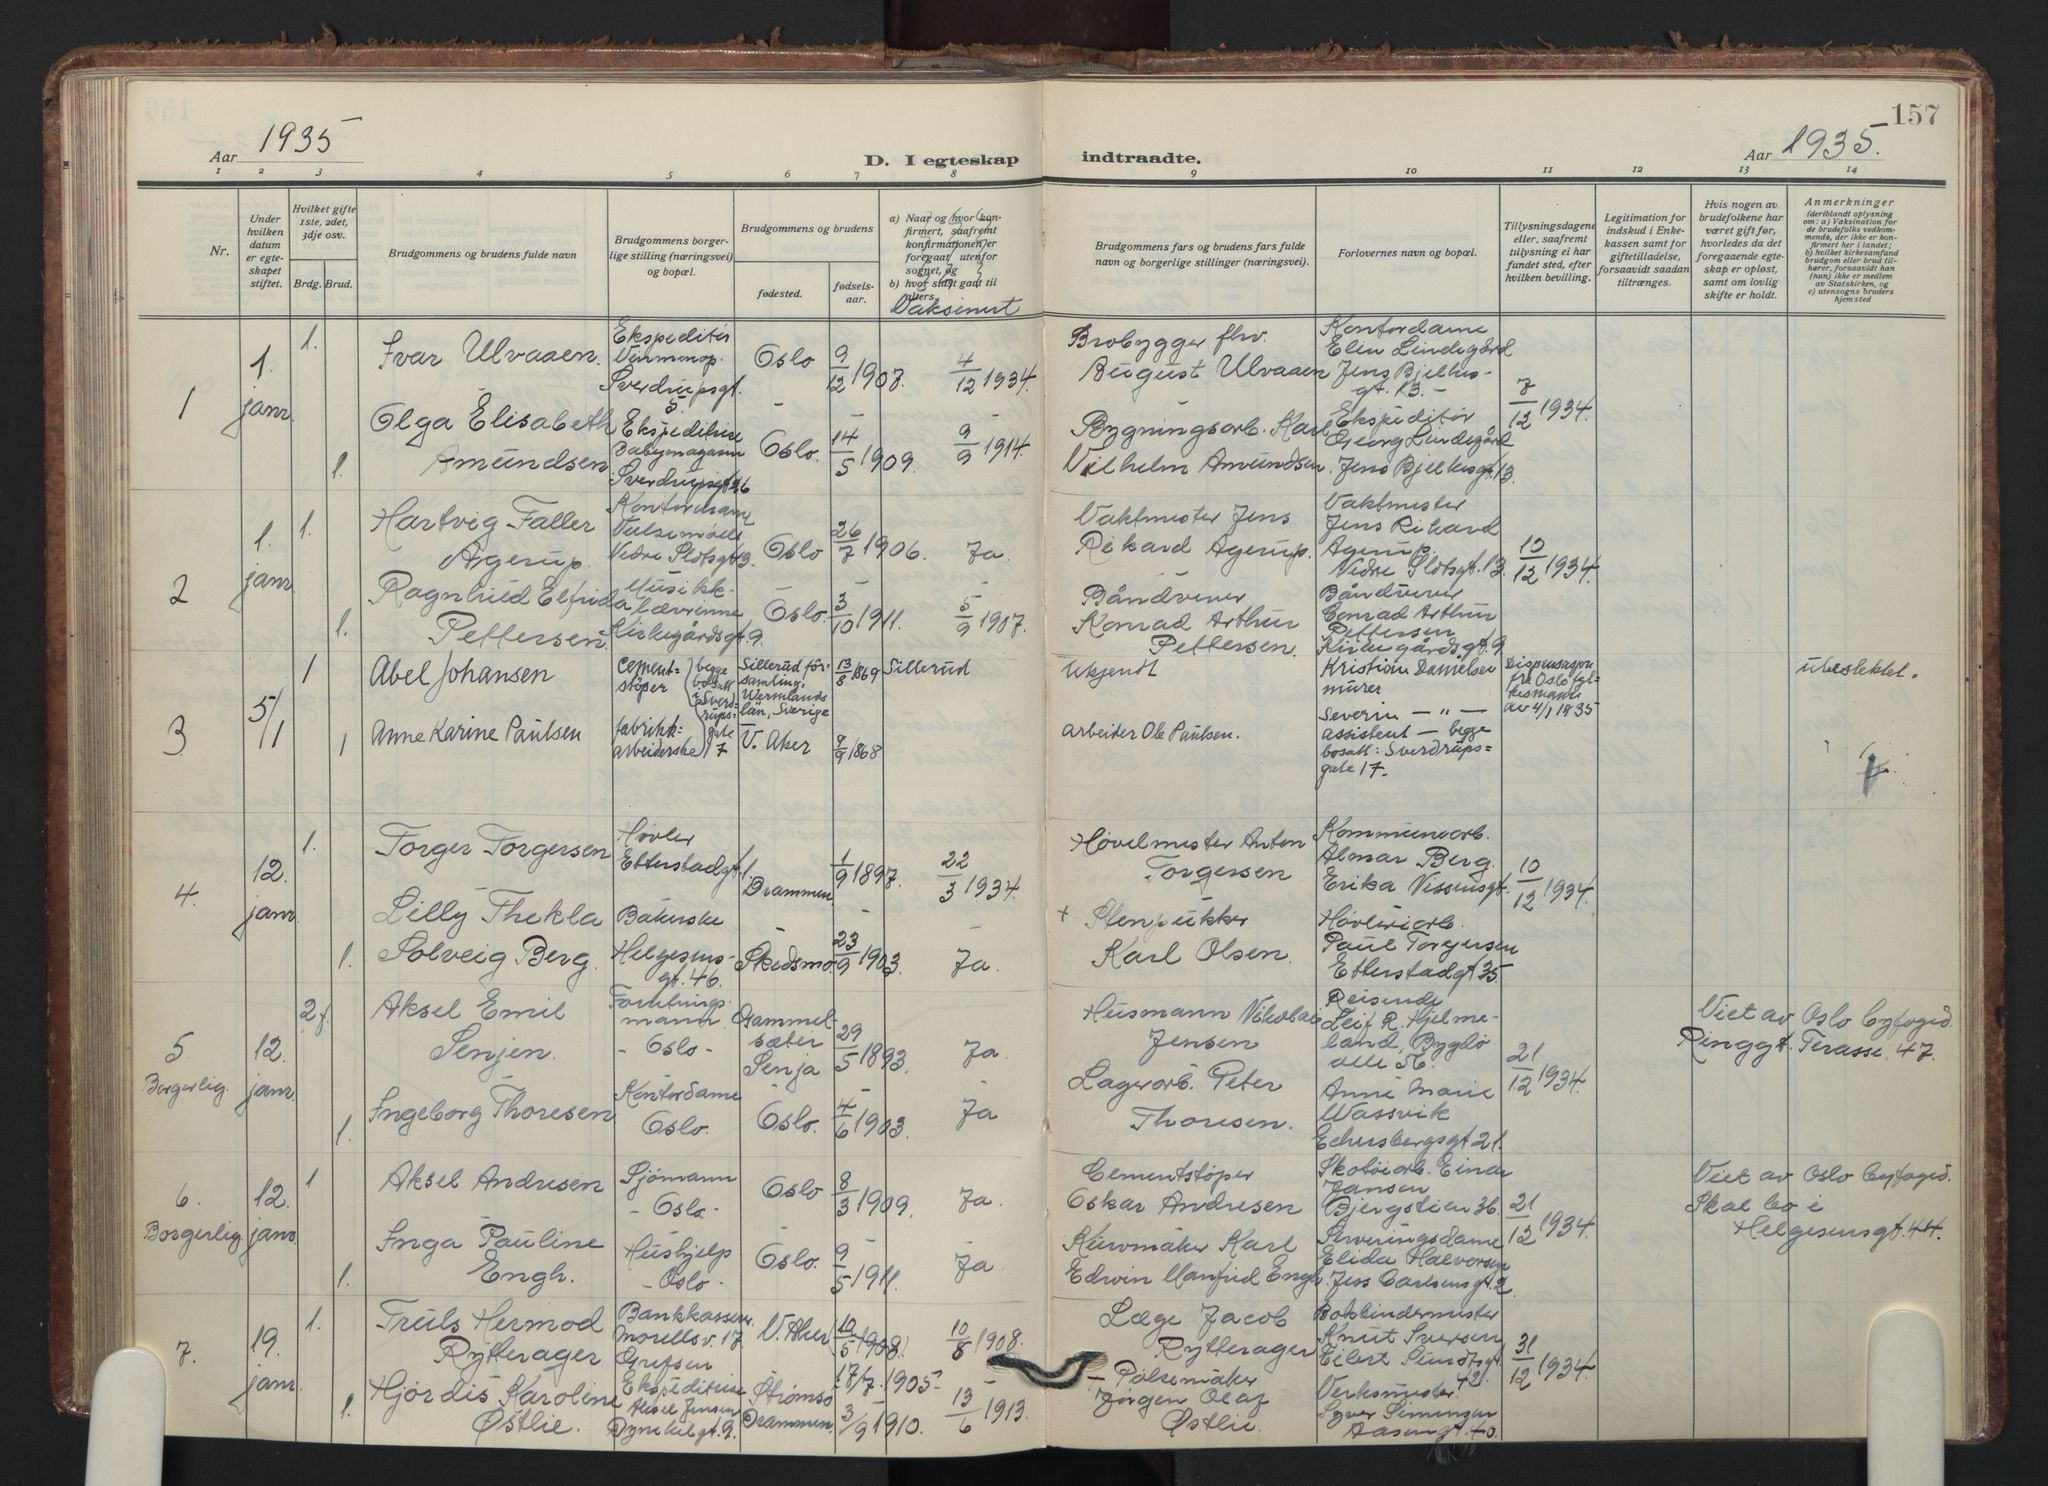 157
Aar 1935
D. I egteskap indtraadte.
Aar 1935.
1 2 3 4 5 6 7 8 9 10 11 12 13 14
Nr.
Under hvilken datum er egteskapet stiftet.
Hvilket gifte 1ste, 2det, 3dje osv.
Brdg. Brud.
Brudgommens og brudens fulde navn
Brudgommens borgerlige stilling (næringsvei) og bopæl.
Brudgommens og brudens
fødested.
fødselsaar.
a) Naar og hvor konfirmert, saafremt konfirmationen er foregaat utenfor sognet, og
b) hvor sidst gaat til alters.
Vaksinert
Brudgommens fars og brudens fars fulde navn og borgerlige stillinger (næringsvei).
Forlovernes navn og bopæl.
Tillysningsdagene eller, saafremt tillysning ei har fundet sted, efter hvilken bevilling.
Legitimation for indskud i Enkekassen samt for giftetilladelse, forsaavidt saadan tiltrænges.
Hvis nogen av brudefolkene har været gift før, hvorledes da det foregaaende egteskap er opløst, samt om lovlig skifte er holdt.
Anmerkninger
(deriblandt oplysning om: a) Vaksination for de brudefolks vedkommende, der ikke er konfirmert her i landet; b) hvilket kirkesamfund brudgom eller brud tilhører, forsaavidt han (hun) ikke er medlem av Statskirken, og c) utensogns bruders hjemsted
1
1. janr.
1.
Ivar Ulvaaen.
Ekspeditør
Sverdrupsgt. 5.
Oslo
9/12 1907.
4/12 1934.
Brobygger fhv.
August Ulvaaen
Kontordame
Elin Lindegård
Jens Bjelkes-
gt. 13.
7/12 1934.
1.
Olga Elisabeth
Amundsen.
Ekspeditrise
Babymagasin
Sverdrupsgt 26
Oslo.
14/5 1909.
9/9 1914.
Bygningsarb. Karl
Vilhelm Amundsen.
Ekspeditør
Georg Lindegård
Jens Bjelkesgt. 13.
2
1. janr.
1.
Hartvig Faller
Agerup.
Kontormann
Nedre Slotsgt 13.
Oslo
26/7 1906.
Ja.
Vaktmester Jens
Rikard Agerup.
Vaktmester
Jens Rikard
Agerup.
Nedre Slotsgt. 13.
10/12 1934.
1.
Ragnhild Elfrida
Pettersen.
Musikk-
lærerinne
Kirkegårdsgt. 9.
Oslo.
3/10 1911.
5/9 1907.
Båndvever
Konrad Arthur
Pettersen.
Båndvever
Conrad Arthur
Pettersen
Kirkegårdsgt. 9
3
5/1
1
Abel Johansen
Cement-
støper
begge bosatt i Sverdrups-
gate 17
Sillerud för-
samling,
Wermlands
län, Sverige
13/8 1869
Sillerud
Ukjendt
Kristian Danielsen
murer
Dispensasjon
fra Oslo fyl-
kesmann
av 4/1 1935
ubeslektet.
1
Anne Karine Paulsen
fabrikk-
arbeiderske
V. Aker
9/9 1868
arbeider Ole Paulsen.
Severin — „ —
assistent — begge
bosatt: Sverdrups=
gate 17.
4.
12. janr.
1.
Torger Torgersen
Høvler
Etterstadgt. 1.
Drammen.
1/9 1897.
22/3 1934.
Høvelmester Anton
Torgersen
Kommunearb.
Almar Berg.
Erika Nissensgt. 1.
10/12 1934.
1.
Lilly Thekla
Solveig Berg.
Bakerske
Helgesens-
gt. 46.
Skedsmo
23/9 1903.
Ja.
+ Stenpukker
Karl Olsen.
Høvleriarb.
Paul Torgersen
Etterstadgt 35.
5
Borgerlig.
12. janr.
2 f.
Aksel Emil
Senjen.
Forretnings-
mann.
- Oslo -
Gammel-
sæter
Senja
29/5 1893.
Ja.
Husmann Nikolai
Jensen
Reisende
Leif R. Hjelme-
land, Bygdø
alle 56.
21/12 1934.
Viet av Oslo byfoged.
Ringgt. Terasse, 47.
1.
Ingeborg Thoresen
Kontordame
Oslo.
Oslo.
4/6 1903.
Ja
Lagerarb. Peter
Thoresen.
Anne Marie
Wassvik
Eckersbergsgt 21.
6.
Borgerlig
12. janr.
1
Aksel Andresen
Sjømann
- Oslo -
Oslo
8/3 1909.
Ja.
Cementstøper
Oskar Andresen
Skotøiarb. Einar
Jansen
Bjergstien 36.
21/12 1934.
Viet av Oslo byfoged.
Skal bo i
Helgesensgt. 44.
1.
Inga Pauline
Engh.
Hushjelp
- Oslo -
Oslo.
9/5 1911.
Ja.
Kurvmaker Karl
Edwin Manfred Engh.
Serveringsdame
Elida Halvorsen
Jess Carlsensgt. 2.
7.
19. janr.
1.
Truls Hermod
Rytterager
Bankkasserer.
Morells v. 17
Grefsen
V. Aker
(10/5 1908)
17/7. 1905
10/8 1908.
Læge Jacob
Rytterager
Bokbindermester
Knut Iversen
Eilert Sundtsgt. 42.
31/12 1934.
1.
Hjørdis Karoline
Østlie.
Ekspeditrise
Aksel Jensen
Dynekilgt. 9.
Strømsø
Drammen.
3/9 1910.
13/6 1913.
— Pølsemaker
Jørgen Olaf
Østlie.
Verksmester
Syver Simensen
Aasengt.